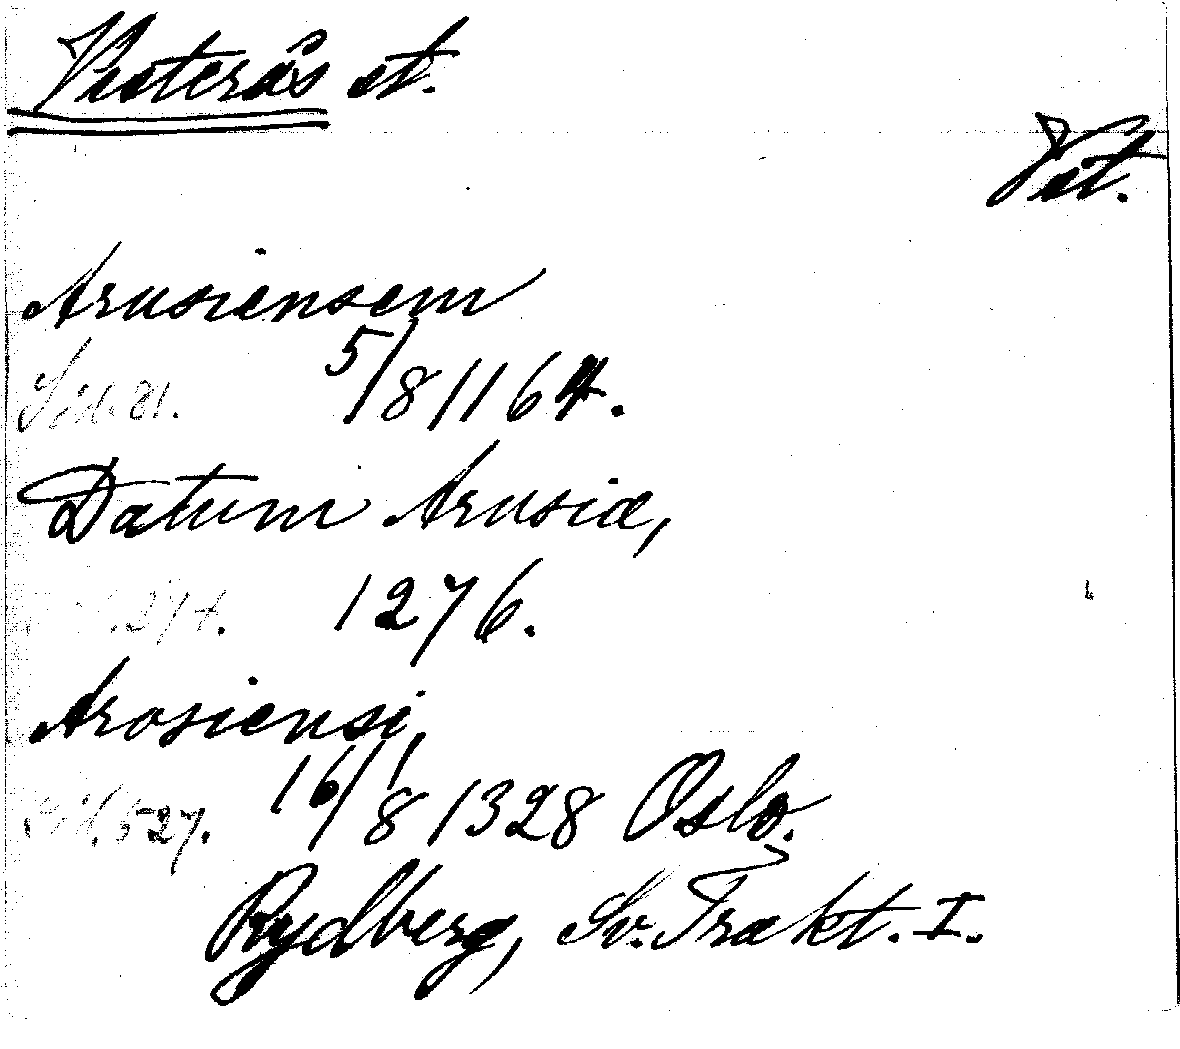 Västerås st.
Väst.
Arusiensem
Sid. 81. 5/8 1164.
Datum Arusiæ,
274. 1276.
Arosiensi,
Sid. 527. 16/8 1328 Oslo.
Rydberg, Sv. Trakt. I.